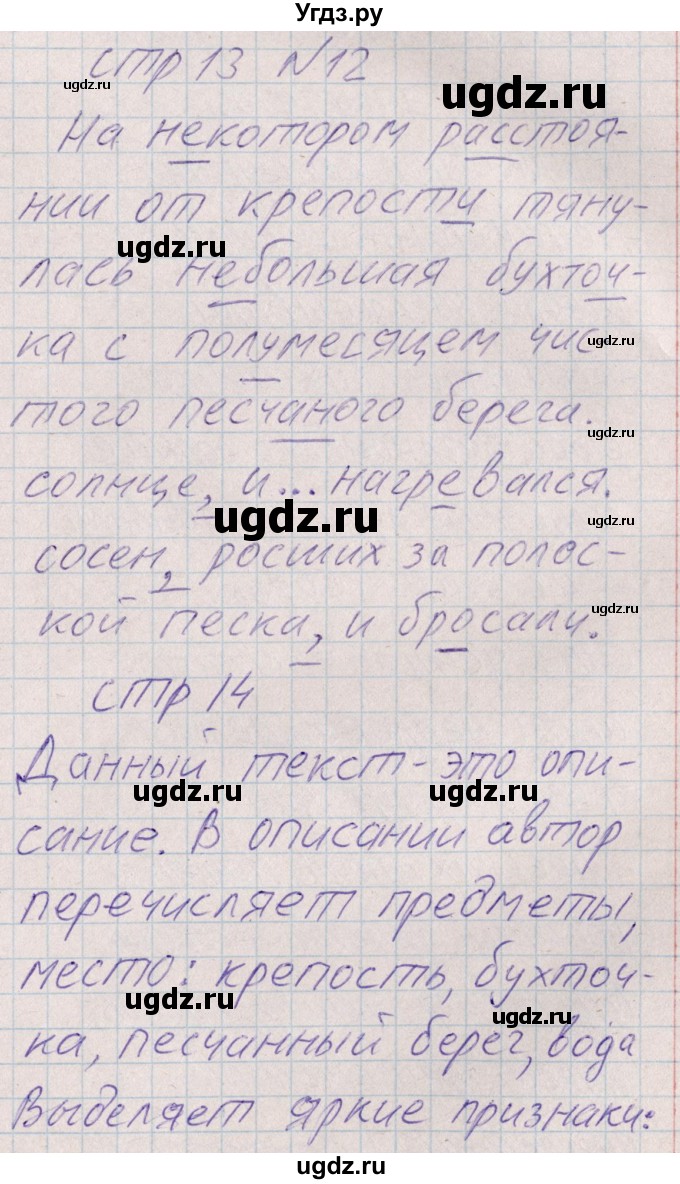 Угдз.ру
стр 13 №12
ugdz.ru
ugdz.ru
На некотором расстоя-
нии от крепости тяну-
ugdz.ru
лась небольшая бухточ-
ка с полумесяцем чис
ugdz.ru
того песчаного берега.
ugdz.ru
солнце, и... нагревался.
ugdz.ru
ugdz.ru
сосен, росших за полос-
кой песка, и бросали.
ugdz.ru
стр 14
Данный текст - это опи-
ugdz.ru
ugdz.ru
сание. В описании автор
перечисляет предметы,
место: крепость, бухточ-
ugdz.ru
ugdz.ru
ка, песчанный берег, вода
Выделяет яркие признаки:
ugdz.ru